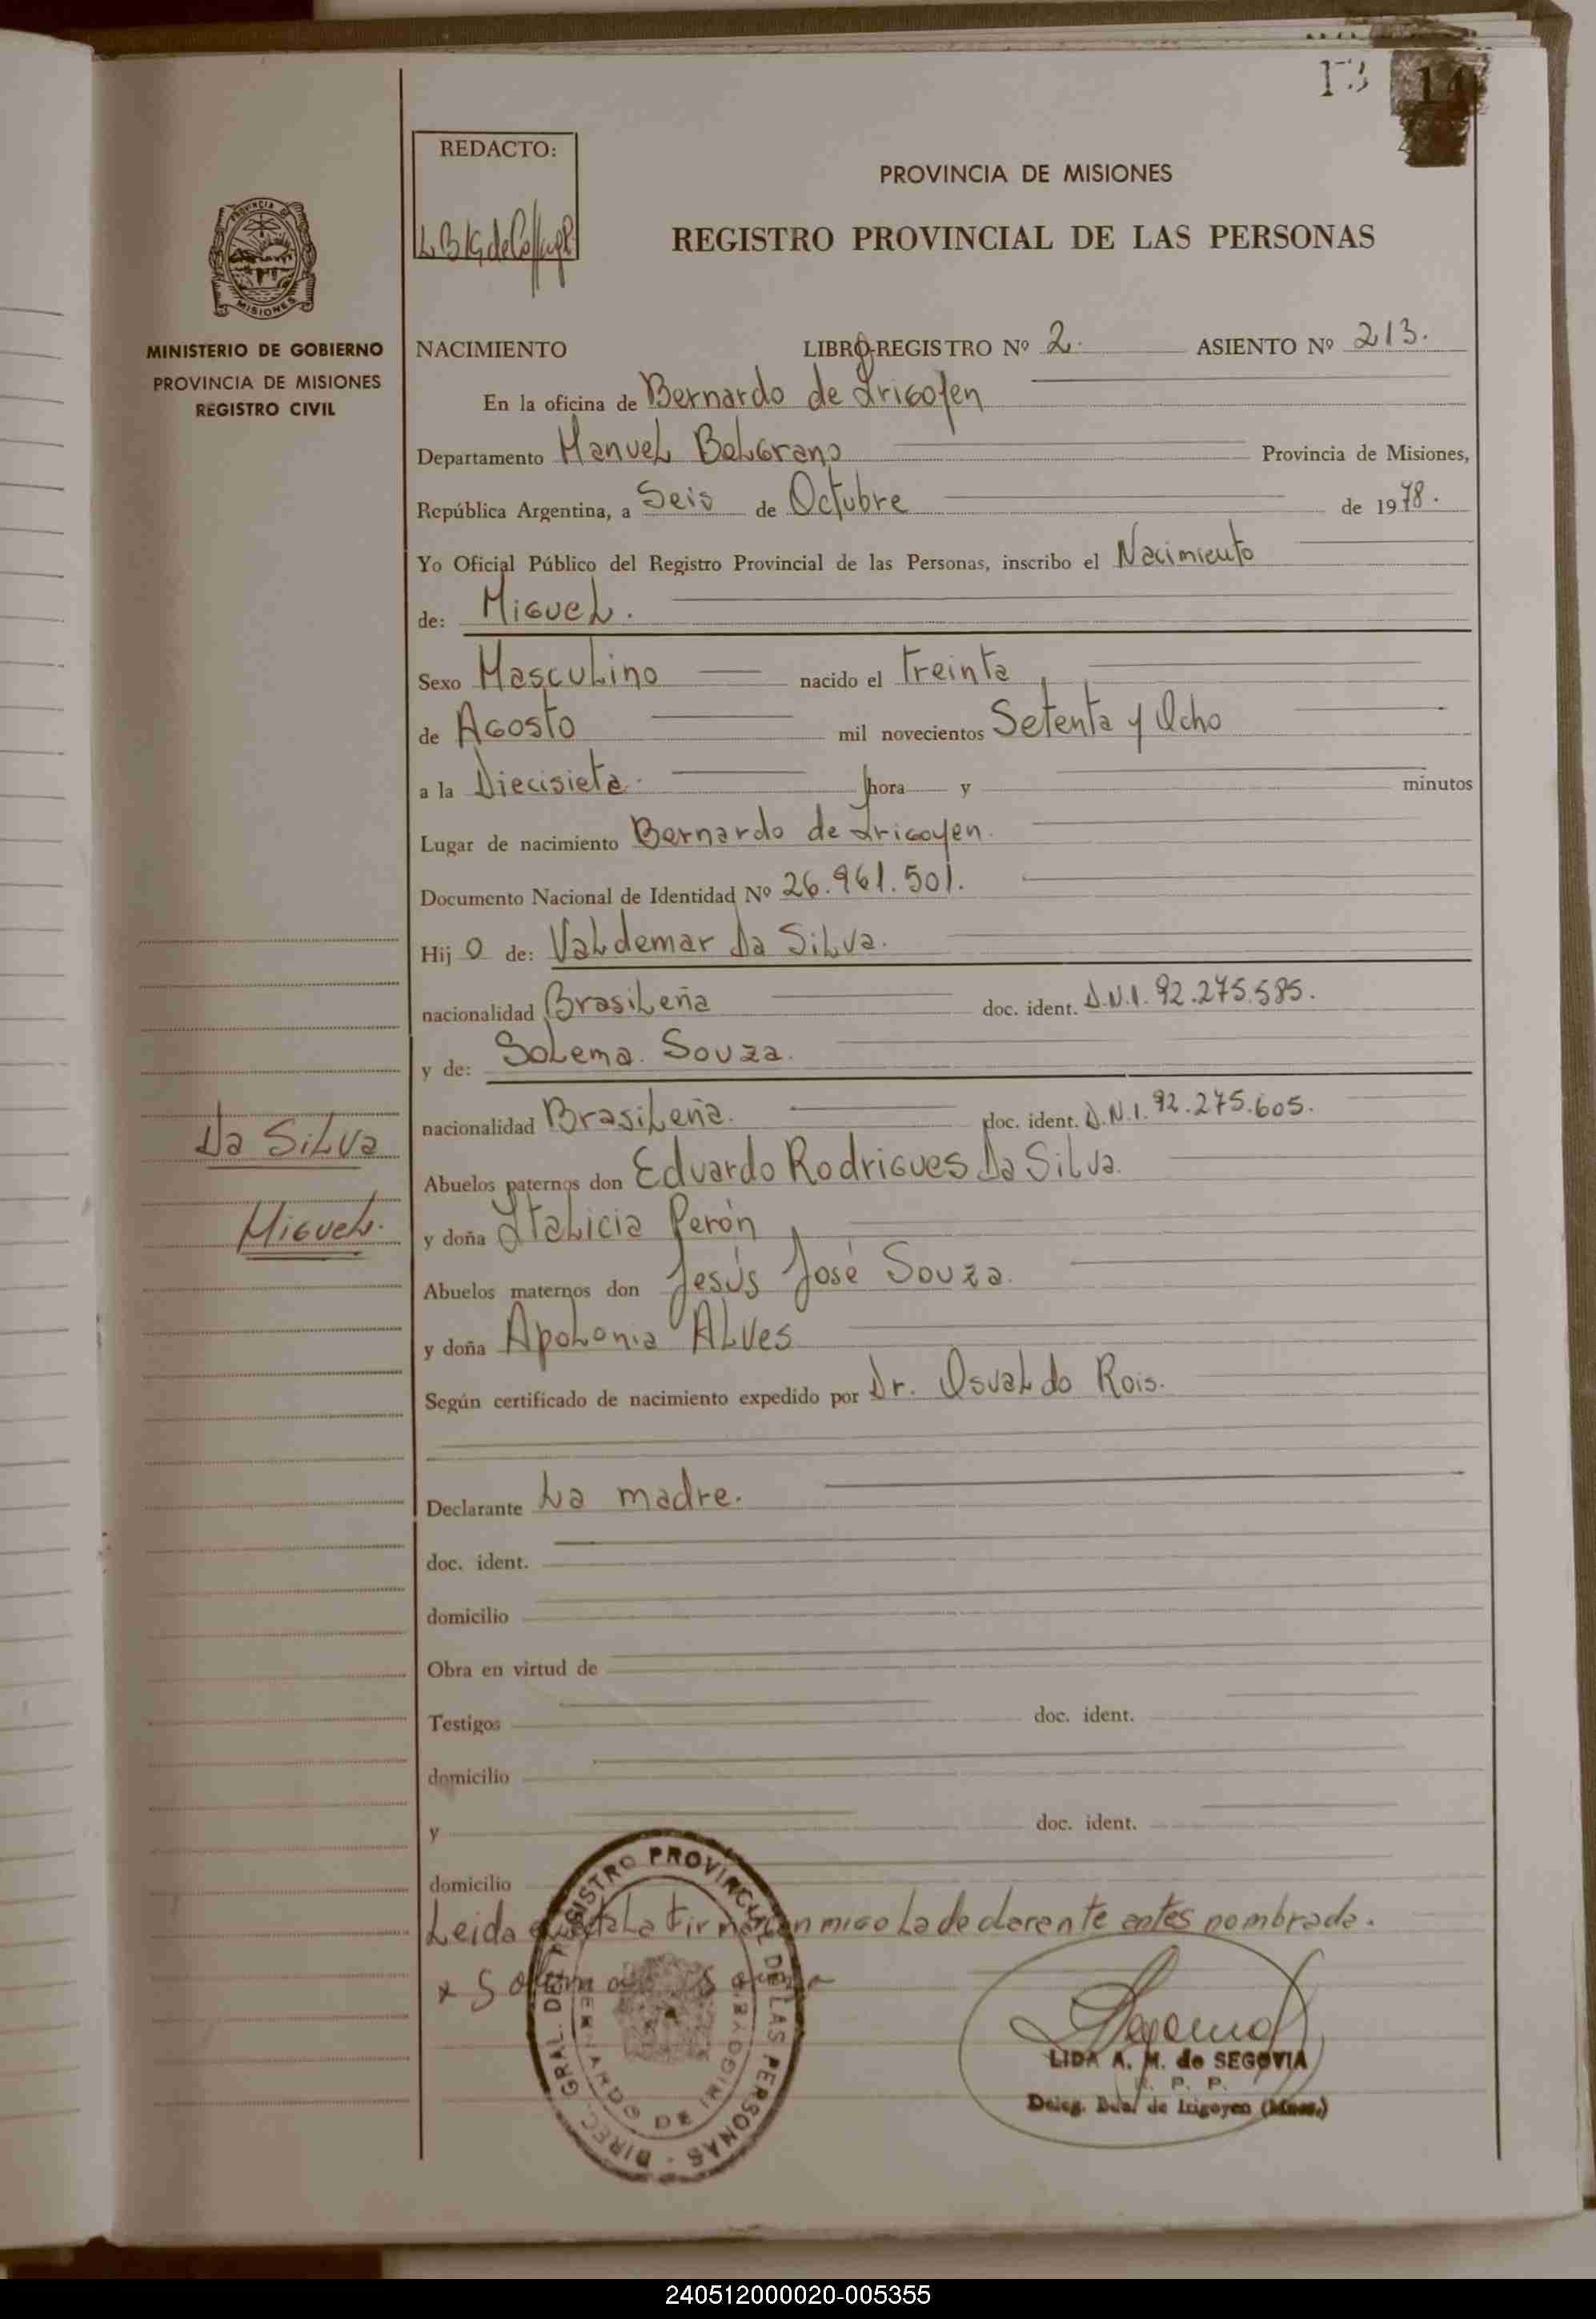 13 14
REDACTO:
PROVINCIA DE MISIONES
REGISTRO PROVINCIAL DE LAS PERSONAS
PROVINCIA DE
MISIONES
MINISTERIO DE GOBIERNO
PROVINCIA DE MISIONES
REGISTRO CIVIL
NACIMIENTO LIBRO-REGISTRO Nº 2. ASIENTO Nº 213.
En la oficina de Bernardo de Irigoyen
Departamento Manuel Belgrano Provincia de Misiones,
República Argentina, a Seis de Octubre de 1978.
Yo Oficial Público del Registro Provincial de las Personas, inscribo el Nacimiento
de: Miguel.
Sexo Masculino nacido el treinta
de Agosto mil novecientos Setenta y Ocho
a la Diecisiete. hora y minutos
Lugar de nacimiento Bernardo de Irigoyen.
Documento Nacional de Identidad Nº 26.961.501.
Hij o de: Valdemar Da Silva.
nacionalidad Brasileña doc. ident. D.N.I. 92.275.585.
y de: Solema Souza.
nacionalidad Brasileña. doc. ident. D.N.I. 92.275.605.
Da Silva
Miguel.
Abuelos paternos don Eduardo Rodrigues Da Silva.
y doña Italicia Perón
Abuelos maternos don Jesús José Souza.
y doña Apolonia Alves
Según certificado de nacimiento expedido por Dr. Osvaldo Rois.
Declarante La madre.
doc. ident.
domicilio
Obra en virtud de
Testigos doc. ident.
domicilio
y doc. ident.
domicilio
Leida el acta la firma conmigo la declarente antes nombrada.
x Solema Souza
DIREC. GRAL. DEL REGISTRO PROVINCIAL DE LAS PERSONAS
BERNARDO DE IRIGOYEN
LIDA A. M. de SEGOVIA
P. P.
Deleg. Bdo. de Irigoyen (Mnes.)
240512000020-005355